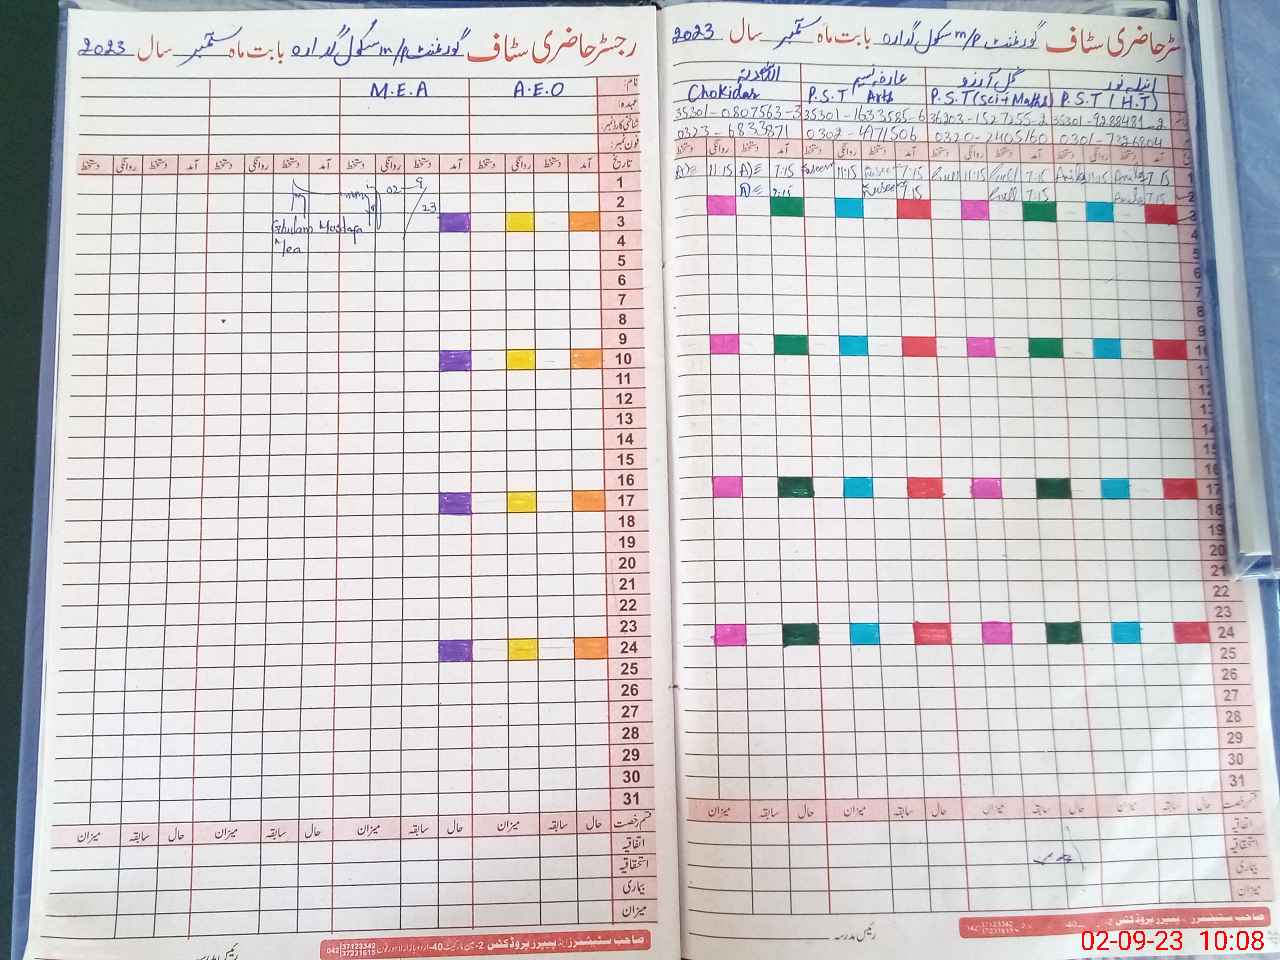 رجسٹر حاضری سٹاف گورنمنٹ m/p سکول گدارہ بابت ماہ ستمبر سال 2023
نام: A.E.O M.E.A
عہدہ:
شناختی کارڈ نمبر:
فون نمبر:
تاریخ آمد دستخط روانگی دستخط آمد دستخط روانگی دستخط آمد دستخط روانگی دستخط آمد دستخط روانگی دستخط
1 02-9
2 23
3 Ghulam Mustafa
4 Mea
5
6
7
8
9
10
11
12
13
14
15
16
17
18
19
20
21
22
23
24
25
26
27
28
29
30
31
قسم رخصت حال سابقہ میزان حال سابقہ میزان حال سابقہ میزان حال سابقہ میزان
اتفاقیہ
استحقاقیہ
بیماری
میزان
رئیس مدرسہ
صاحب سٹیشنرز اینڈ پیپرز پروڈکٹس 042 37123342 37231615
سٹر حاضری سٹاف گورنمنٹ m/p سکول گدارہ بابت ماہ ستمبر سال 2023
انیلہ نور گل آرزو عارفہ نسیم
P.S.T (H.T) P.S.T (Sci+Maths) P.S.T Arts Chokidar
35301-9288481-2 36203-1527255-2 35301-1633585-6 35301-0807563-3
0301-7326804 0320-2405160 0302-4971506 0323-6833871
آمد دستخط روانگی دستخط آمد دستخط روانگی دستخط آمد دستخط روانگی دستخط آمد دستخط روانگی دستخط
1 7:15 Anila 11:15 Anila 7:15 Gull 11:15 Gull 7:15 11:15 7:15 11:15
2 7:15 Anila 7:15 Gull 7:15 7:15
3
4
5
6
7
8
9
10
11
12
13
14
15
16
17
18
19
20
21
22
23
24
25
26
27
28
29
30
31
قسم رخصت حال سابقہ میزان حال سابقہ میزان حال سابقہ میزان حال سابقہ میزان
اتفاقیہ
استحقاقیہ
بیماری
میزان
رئیس مدرسہ
صاحب سٹیشنرز اینڈ پیپرز پروڈکٹس 042 37123342
02-09-23 10:08